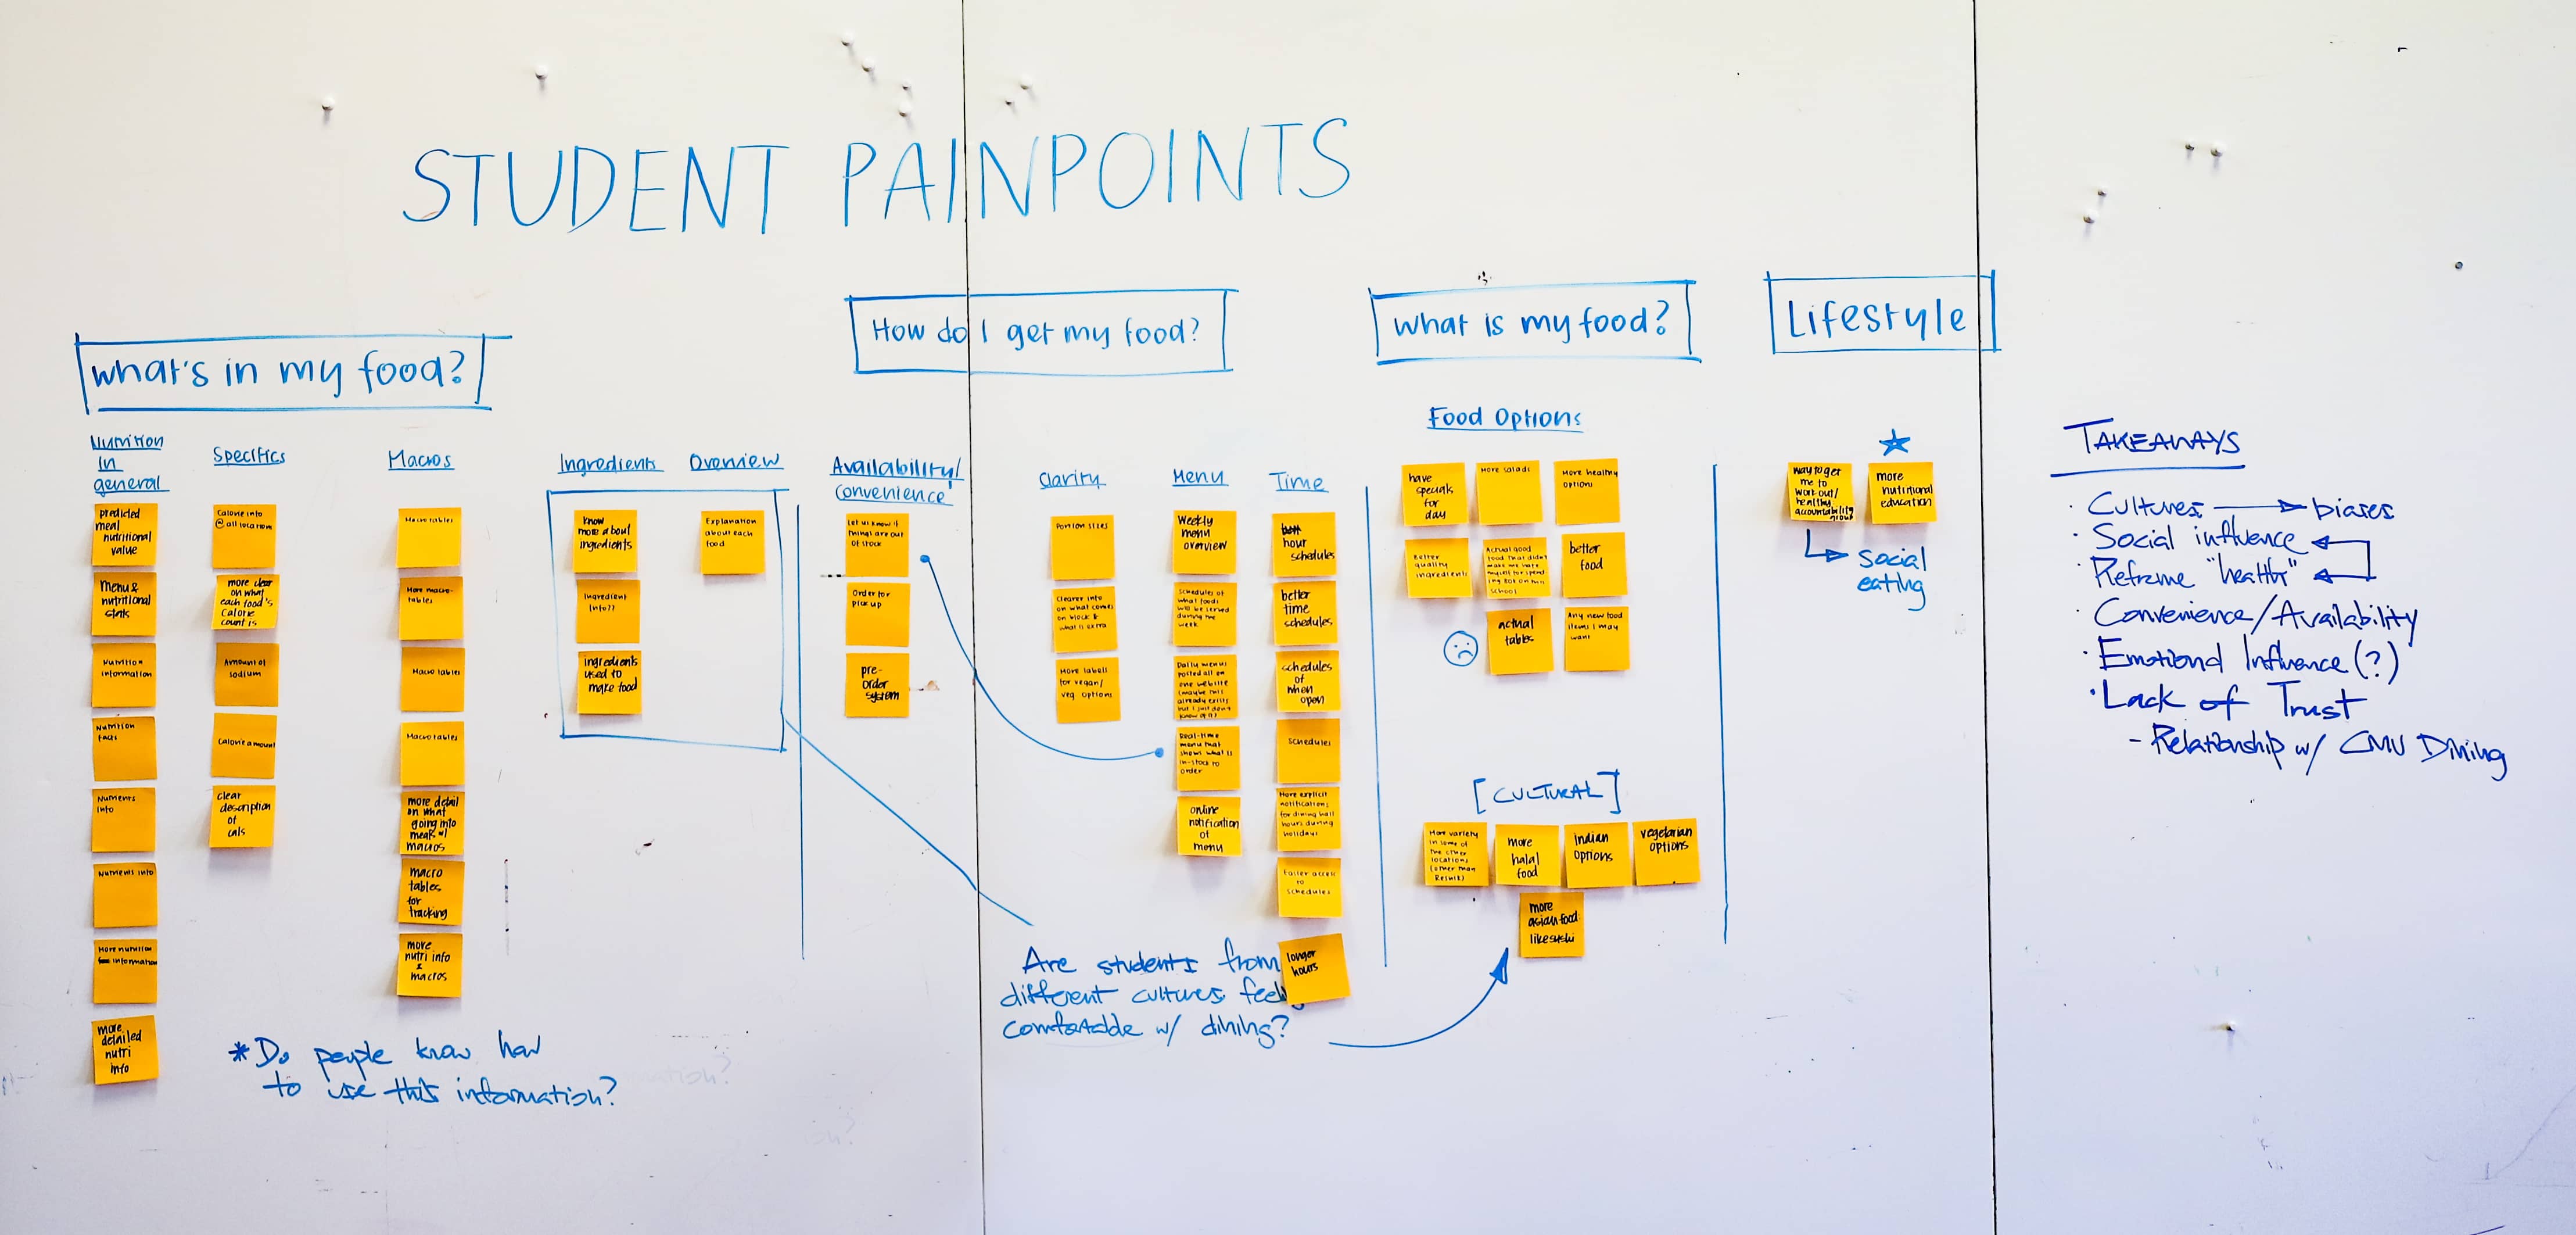 STUDENT PAINPOINTS
what's in my food?
Nutrition
in
general
predicted
meal
nutritional
value
Menu &
nutritional
stats
Nutrition
information
Nutrition
facts
Nutrients
info
Nutrients info
More nutrition
information
more
detailed
nutri
info
Specifics
Calorie info
@ all location
more clear
on what
each food's
calorie
count is
Amount of
sodium
Calorie amount
clear
description
of
cals
Macros
Macro tables
More macro-
tables
Macro tables
Macro tables
more detail
on what
going into
meals w/
macros
macro
tables
for
tracking
more
nutri info
&
macros
*Do people know how
to use this information?
Ingredients
know
more about
ingredients
Ingredient
Info??
ingredients
used to
make food
Overview
Explanation
about each
food
How do I get my food?
Availability/
Convenience
Let us know if
things are out
of stock
Order for
pick up
pre-
order
system
Clarity
Portion sizes
Clearer info
on what comes
on block &
what is extra
More labels
for vegan/
veg options
Menu
Weekly
menu
overview
Schedules of
what foods
will be served
during the
week
Daily menus
posted all on
one website
(maybe this
already exists
but I just don't
know of it)
Real-time
menu that
shows what is
in-stock to
order
online
notification
of
menu
Time
hour
schedules
better
time
schedules
schedules
of
when
open
Schedules
More explicit
notifications
for dining hall
hours during
holidays
Easier access
to
schedules
longer
hours
Are students from
different cultures feel
comfortable w/ dining?
what is my food?
Food Options
have
specials
for
day
More salads
More healthy
options
Better
quality
ingredients
Actual good
food that didn't
make me hate
myself for spend
ing 80k on this
school
better
food
actual
tables
Any new food
items I may
want
[CULTURAL]
More variety
in some of
the other
locations
(other than
Resnik)
more
halal
food
indian
options
vegetarian
options
more
asian food
like sushi
Lifestyle
way to get
me to
work out/
healthy
accountability
group
social
eating
more
nutritional
education
TAKEAWAYS
· Cultures → biases
· Social influence
· Reframe "health"
· Convenience/Availability
· Emotional Influence (?)
· Lack of Trust
- Relationship w/ CMU Dining